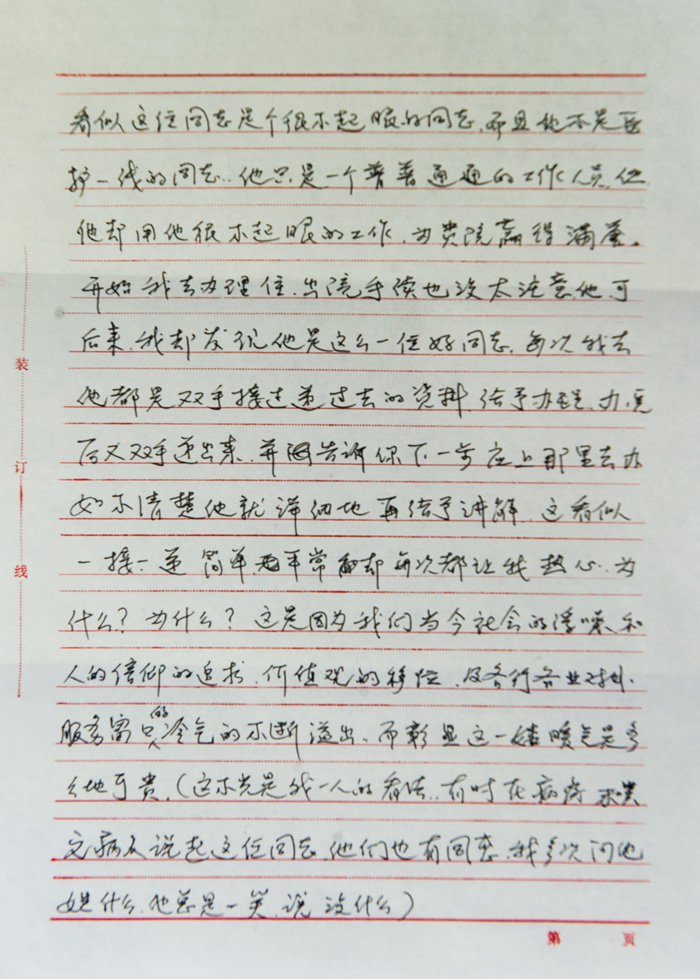 看似这位同志是个很不起眼的同志,而且他不是医
护一线的同志..他只是一个普普通通的工作人员,但
他却用他很不起眼的工作,为贵院赢得满誉。
开始我去办理住、出院手续也没太注意他,可
后来,我却发现他是这么一位好同志,每次我去
他都是双手接过递过去的资料,给予办理,办完
后又双手递出来,并告诉你下一步应上那里去办
如不清楚他就详细地再给予讲解,这看似
一接一递简单而平常却每次都让我热心..为
什么?为什么?这是因为我们当今社会的浮噪和
人的信仰的追求,价值观的移位,及各行各业对外
服务窗口的冷气的不断溢出、而彰显这一缕暖气是多
么地可贵,(这不光是我一人的看法..有时在病房
病友说起这位同志,他们也有同感,我多次问他
姓什么,他总是一笑,说没什么)
装
订
线
第 页